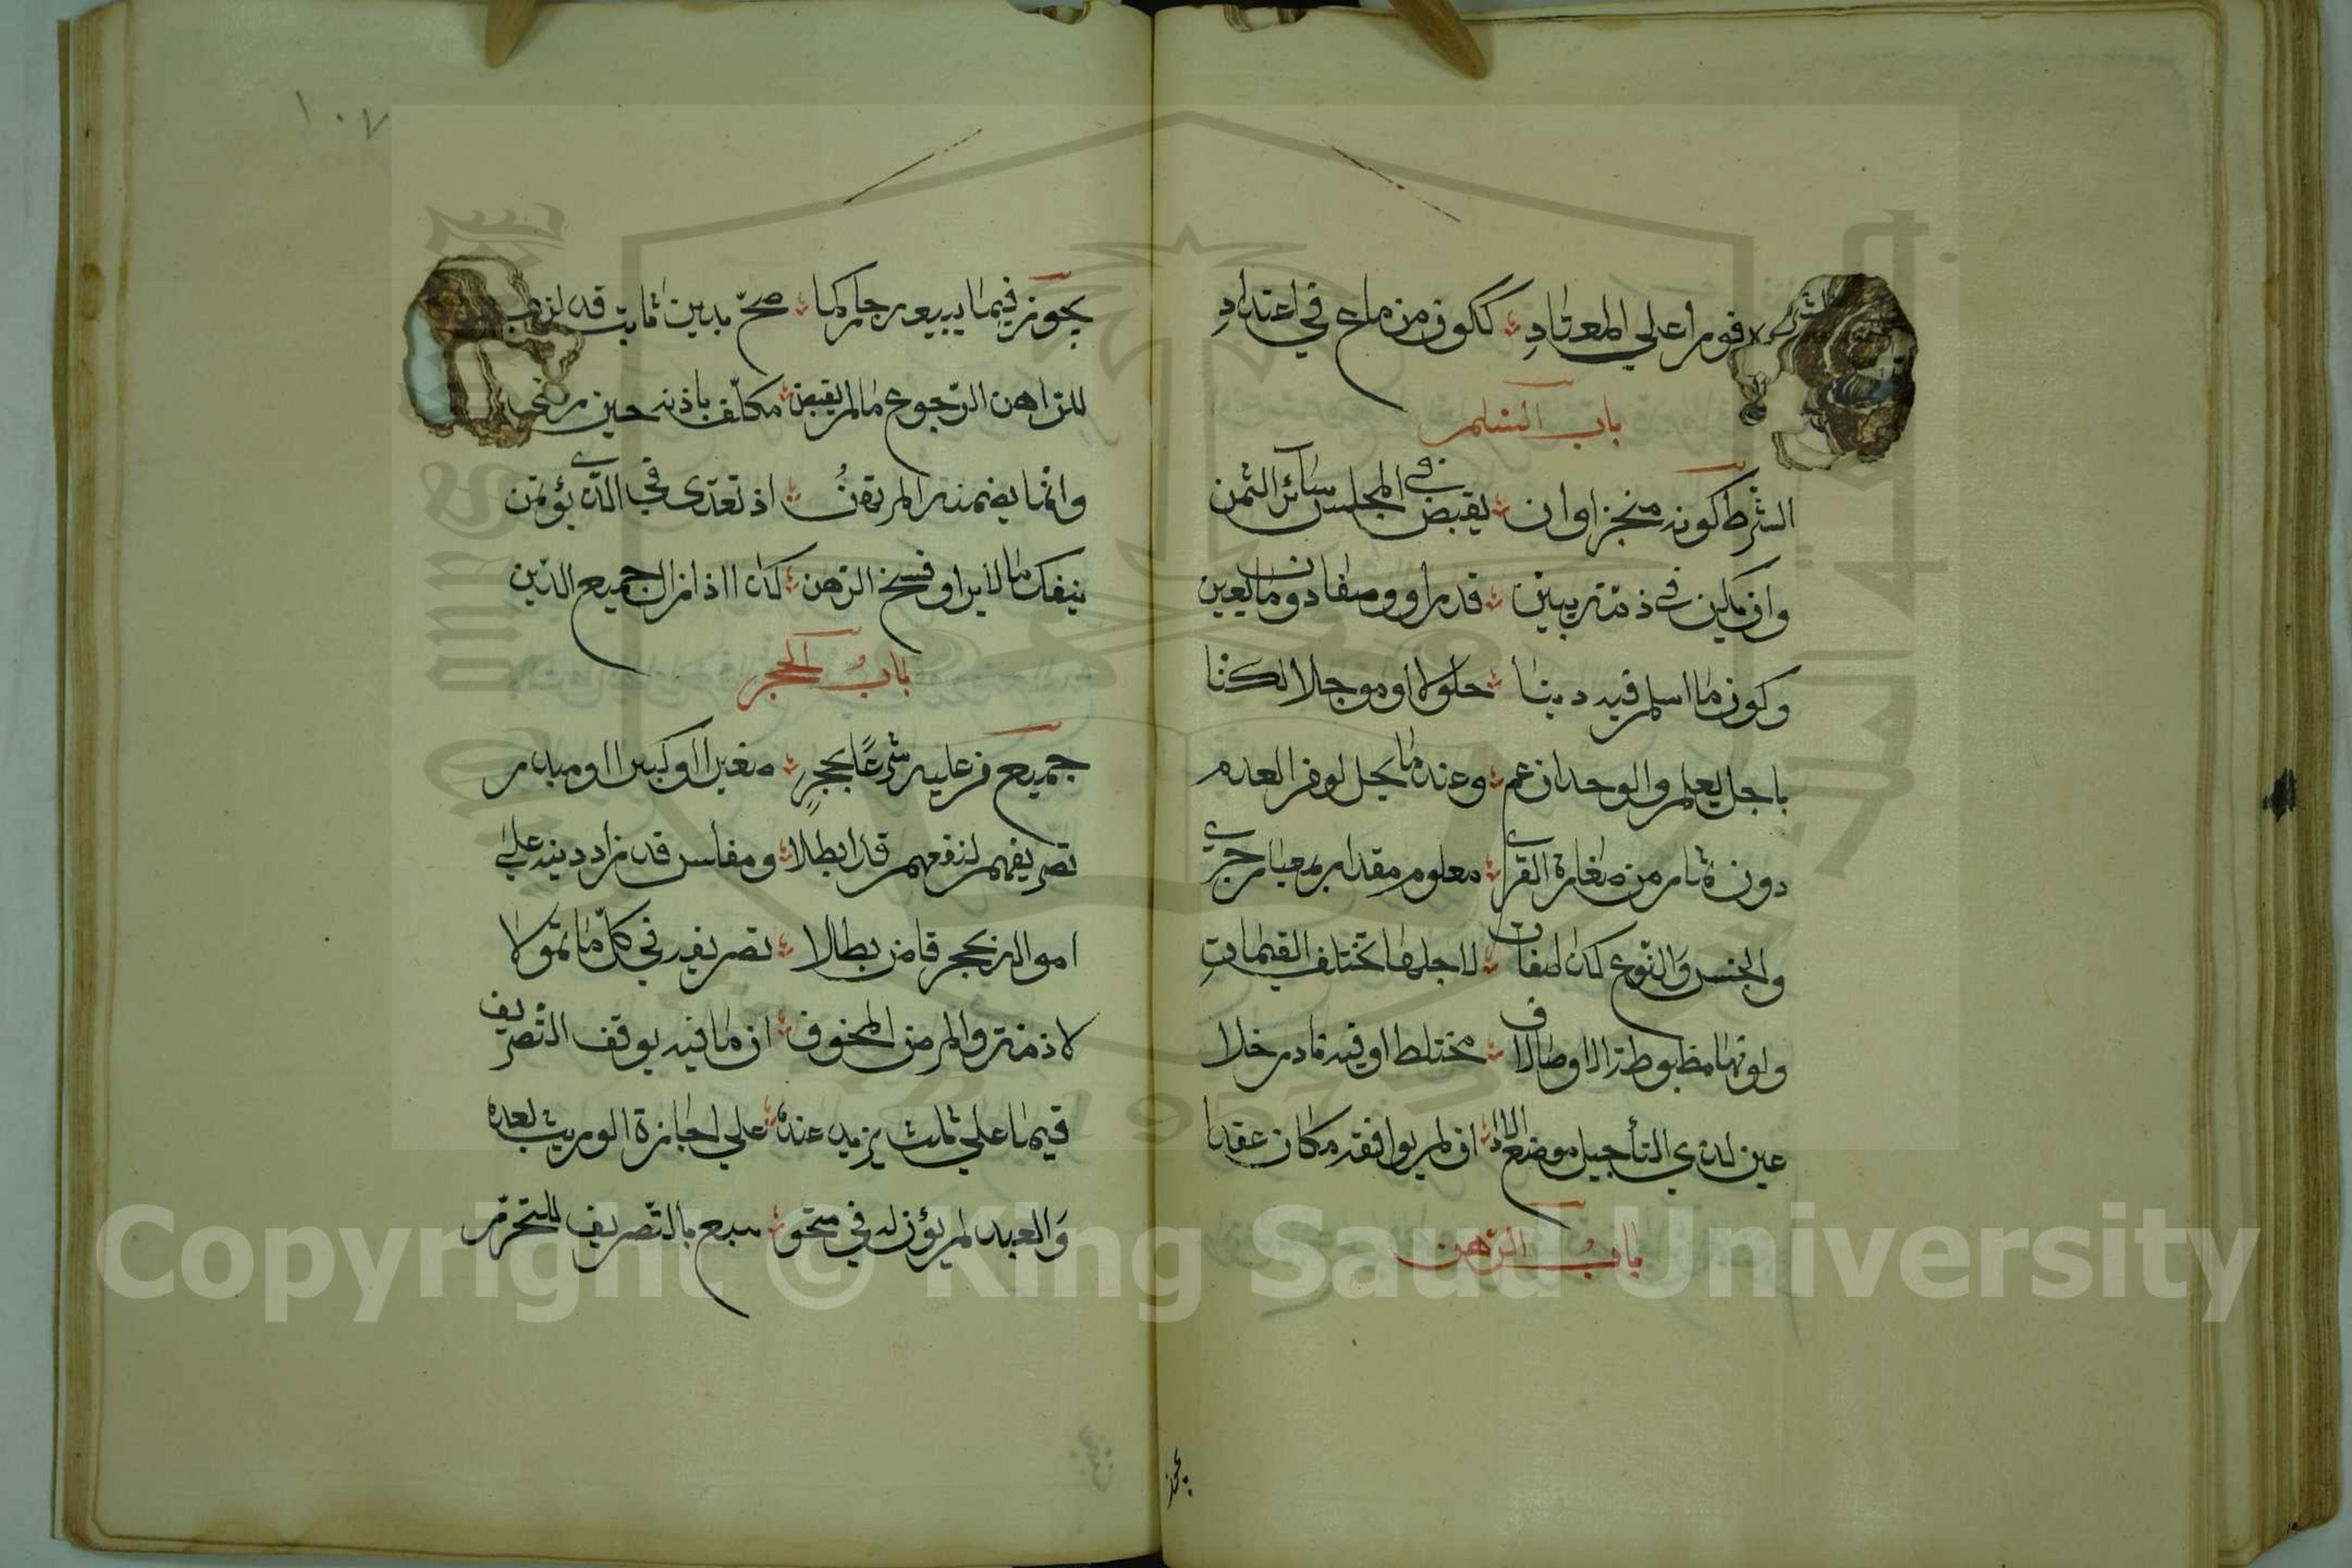 فورا علي المعتاد ككون من ماع في اعتداد
باب السلم
الشرط كونه منجزا وان يقبض في المجلس سائر الثمن
وان يكن في ذمة يبين قدرا ووصفا دون ما يعين
وكون ما اسلم فيه دينا حلولا او موجلا لكنا
باجل يعلم والوجدان عم وعند ما يحل لو فر العدم
دون ثمار من صغارة القرى معلوم مقدار بمعيار جرى
والجنس والنوع كذا صفات لاجلها تختلف القيمات
ولونها مظبوطة الاوصاف مختلط او فيه نادر خلا
عين لذي التأجيل موضع الادا ان لم يوافقه مكان عقدا
باب الرهن
يجوز
١٠٧
يجوز فيما بيعه جاز كما صح بدين ثابت قد لزما
للراهن الرجوع ما لم يقبض مكلف باذنه حين رضي
وانما يضمنه المرتهن اذ تعدى في الذي يؤتمن
ينفك بالابرا وفسخ الرهن كذا اذا زال جميع الدين
باب الحجر
جميع من عليه شرعا يحجر صغيرا او كبيرا او مبذر
تصريفهم لنفعهم قد ابطلا ومفلس قد زاد دينه علي
امواله بحجر قاض بطلا تصريفه في كل ما تمولا
لا ذمة والمرض المخوف ان مات فيه يوقف التصريف
فيما علي ثلث يزيد عنده علي اجازة الوريث بعده
والعبد لم يؤذن له في متجر يتبع بالتصريف للتحرر
Copyright © King Saud University
1957